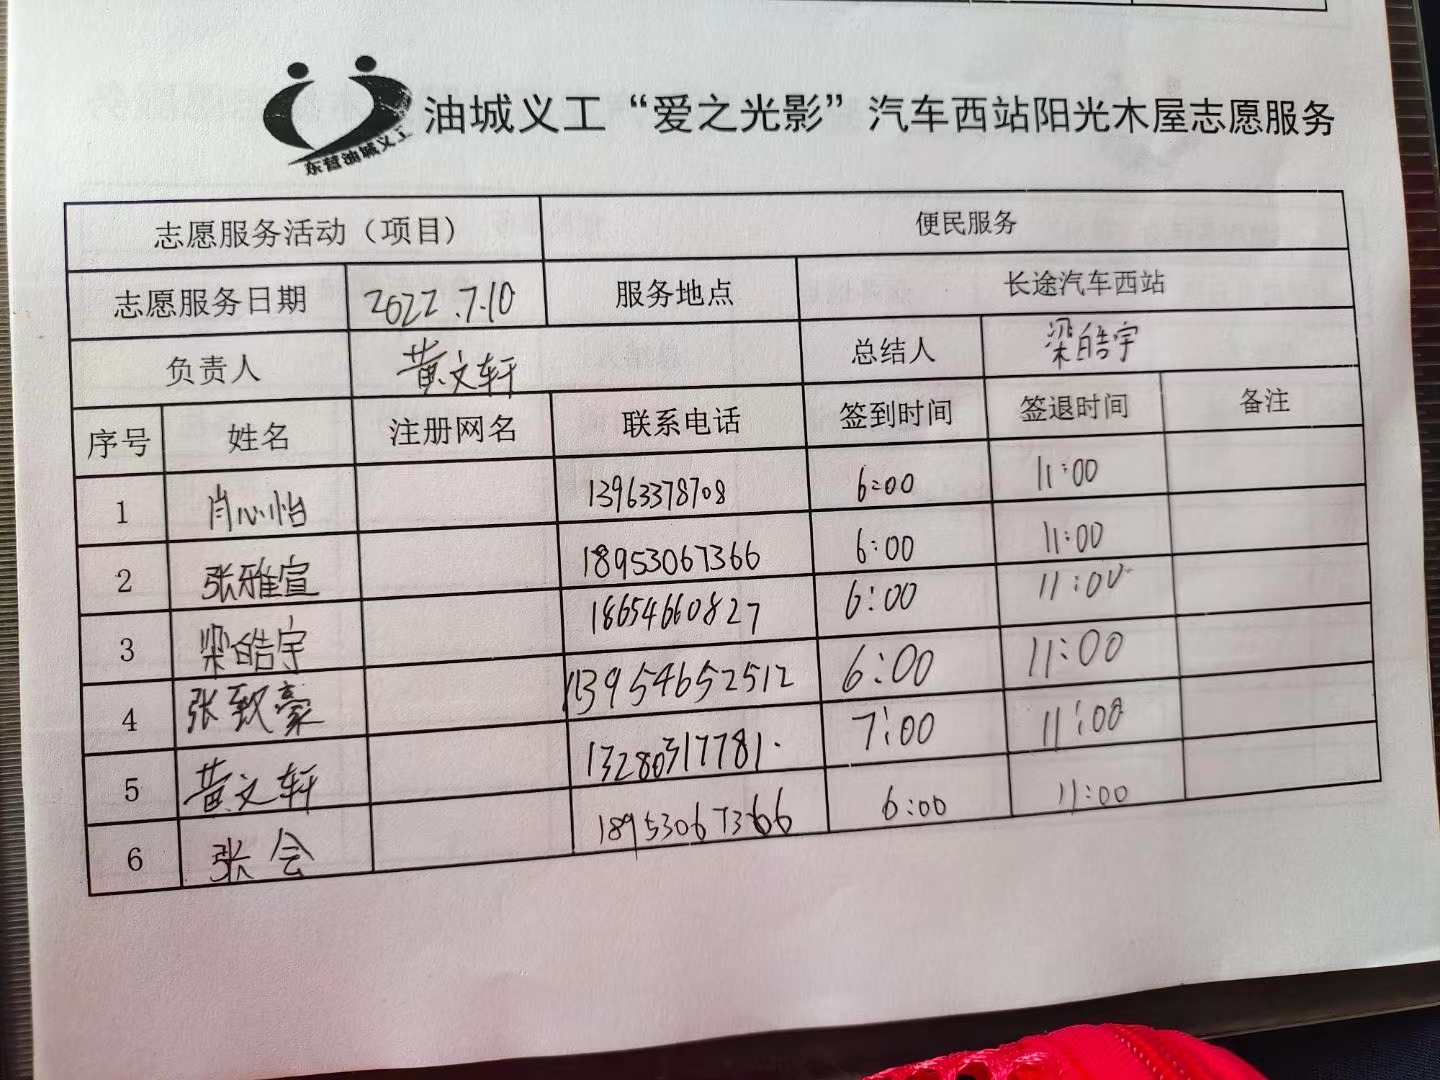 东营油城义工
油城义工“爱之光影”汽车西站阳光木屋志愿服务
志愿服务活动（项目） 便民服务
志愿服务日期 2022.7.10 服务地点 长途汽车西站
负责人 黄文轩 总结人 梁皓宇
序号 姓名 注册网名 联系电话 签到时间 签退时间 备注
1 肖心怡 13963378708 6:00 11:00
2 张雅宣 18953067366 6:00 11:00
3 梁皓宇 18654660827 6:00 11:00
4 张致豪 13954652512 6:00 11:00
5 黄文轩 13280317781. 7:00 11:00
6 张会 18953067366 6:00 11:00